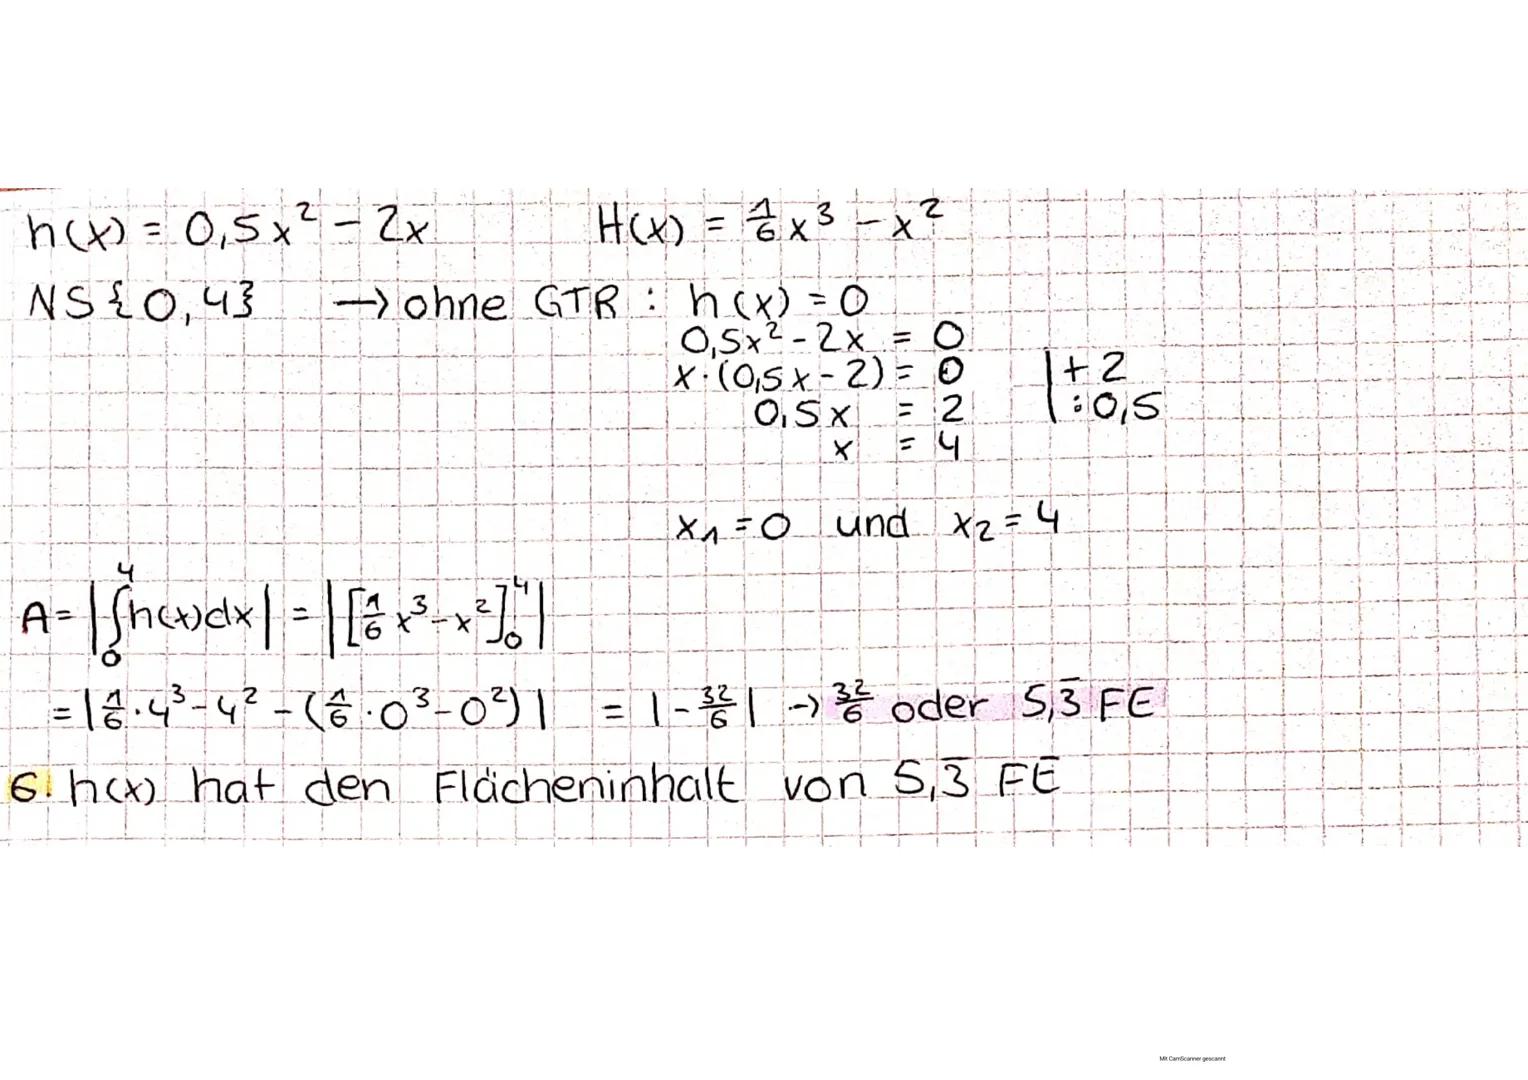 h(x) = 0,5x² - 2x H(x) = 1/6 x³ - x²
NS{0,4} → ohne GTR : h(x) = 0
0,5x² - 2x = 0
x·(0,5x - 2) = 0 |+ 2
0,5x = 2 | : 0,5
x = 4
x₁ = 0 und x₂ = 4
A = |∫₀⁴ h(x)dx| = |[1/6 x³ - x²]₀⁴|
= |1/6 · 4³ - 4² - (1/6 · 0³ - 0²)| = |- 32/6| → 32/6 oder 5,3̅ FE
6. h(x) hat den Flächeninhalt von 5,3̅ FE
Mit CamScanner gescannt